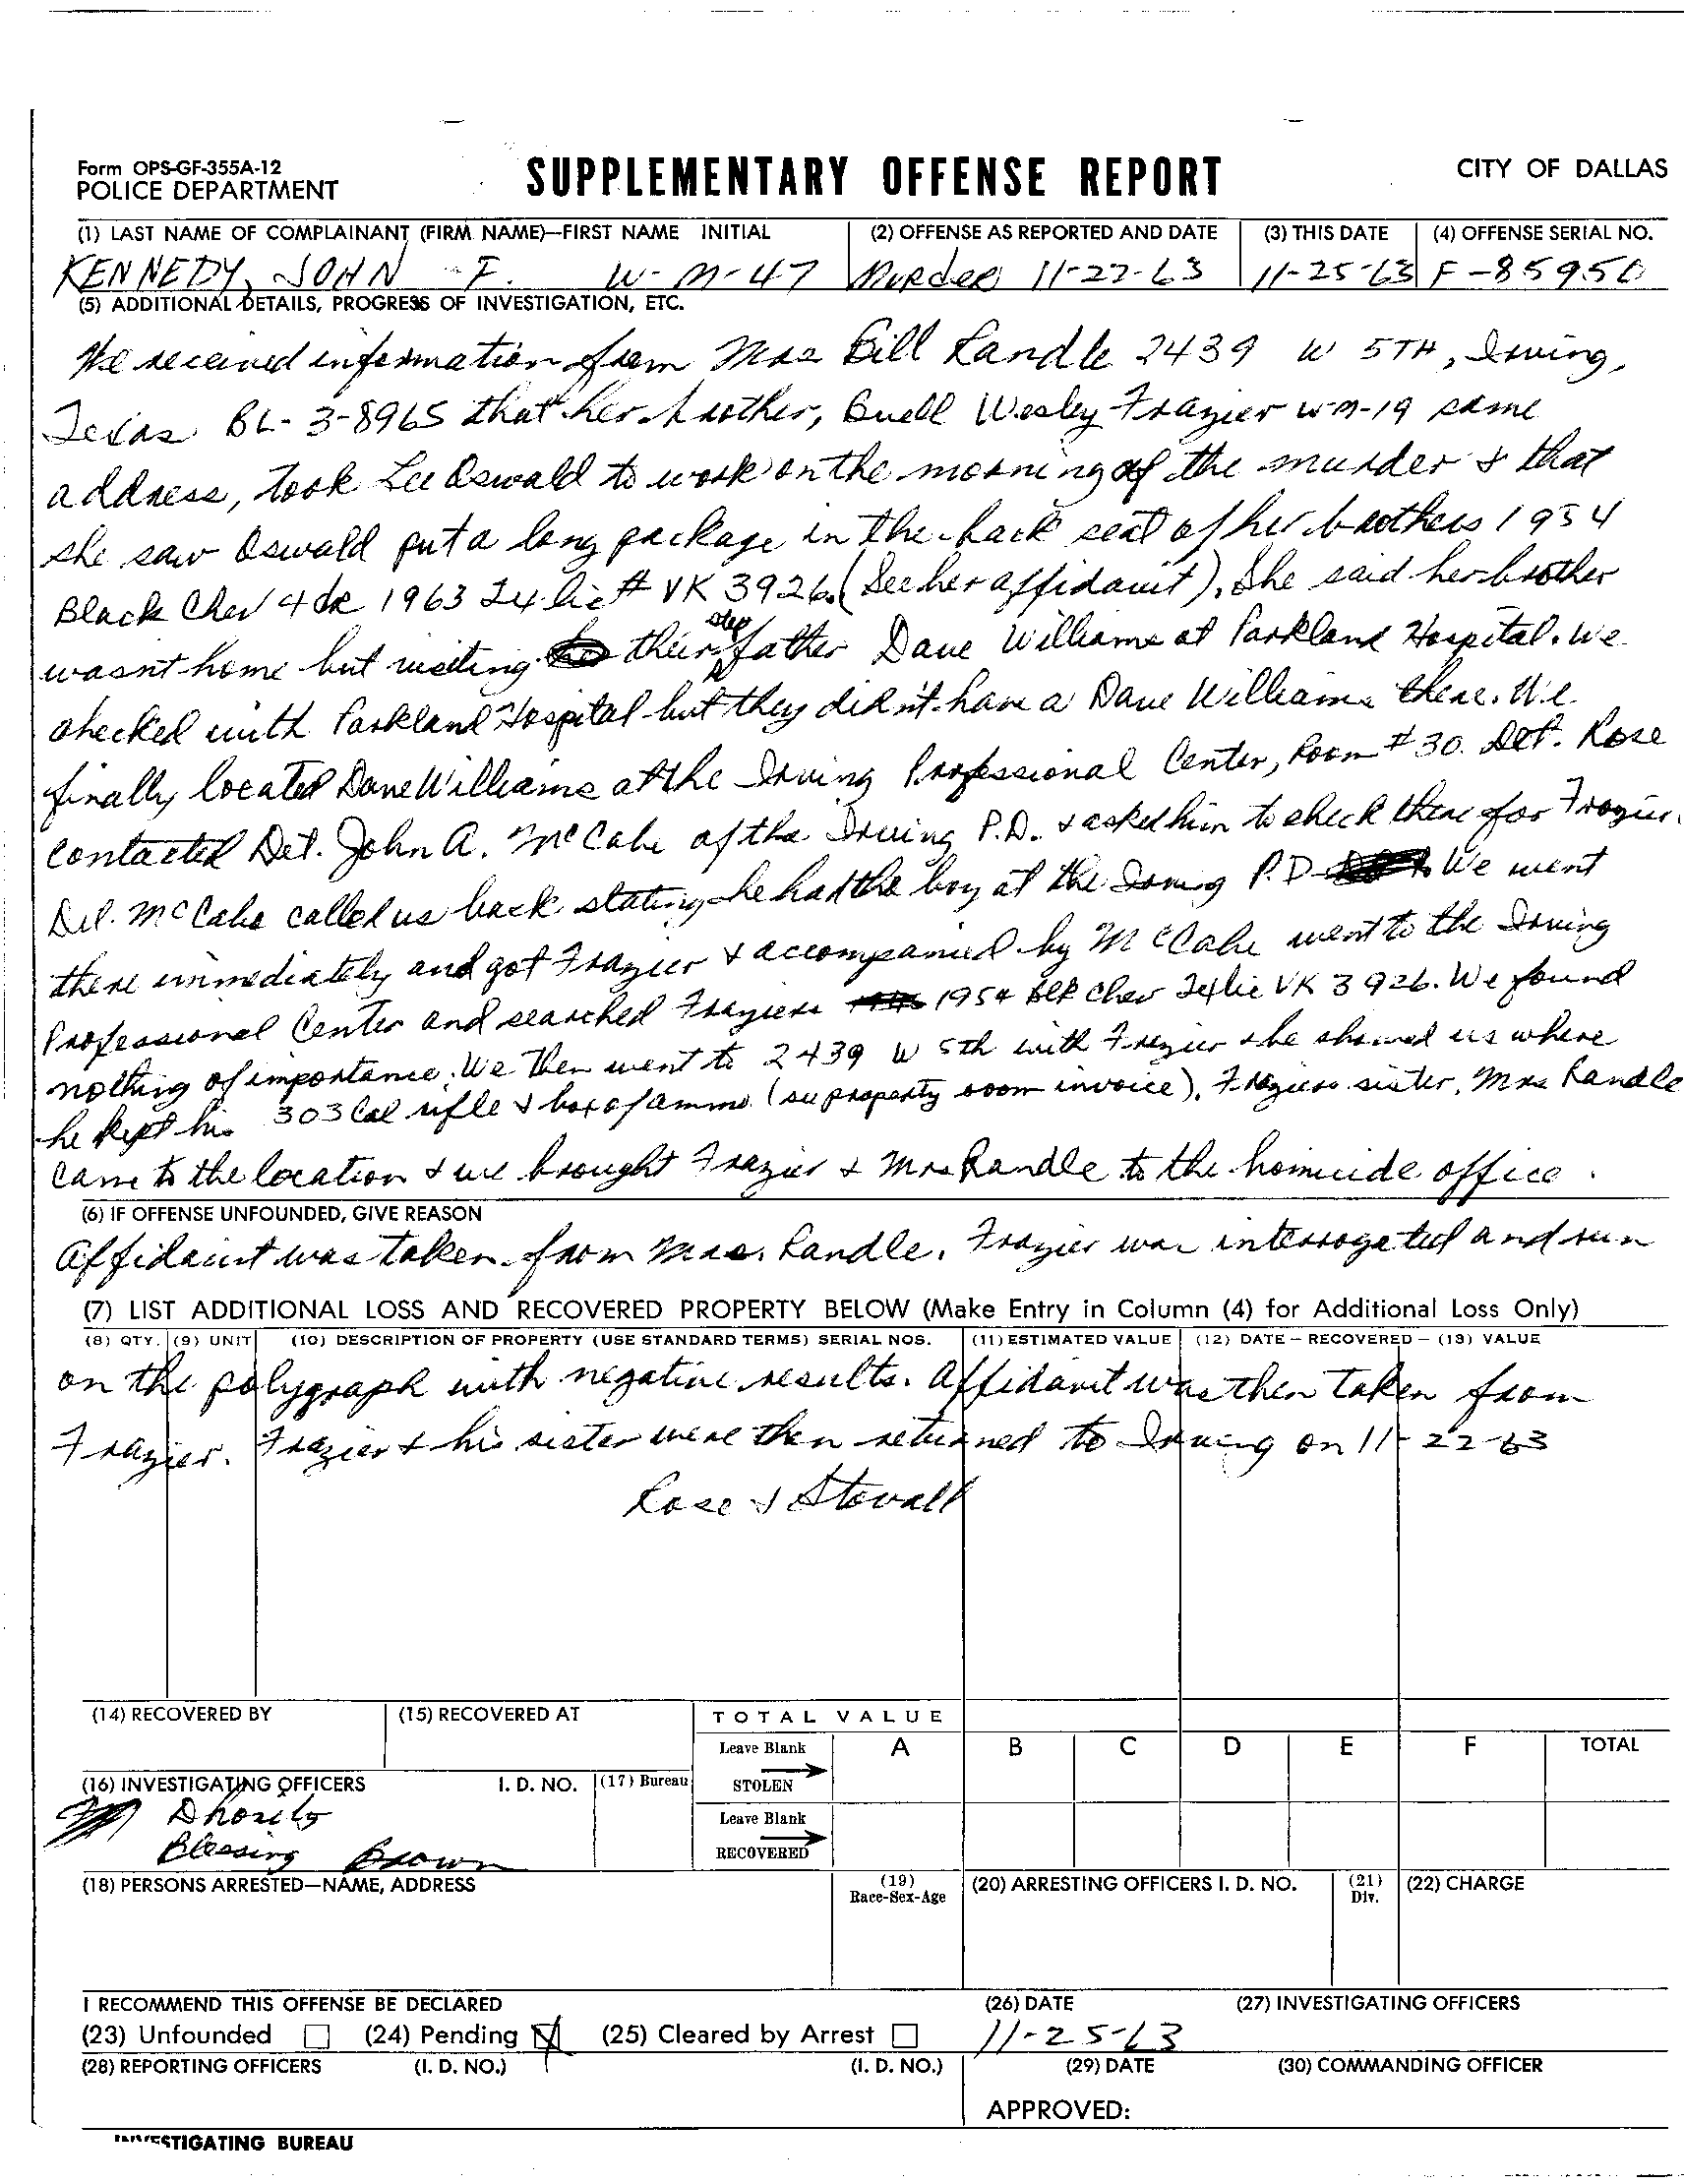 Form OPS-GF-355A-12
POLICE DEPARTMENT
SUPPLEMENTARY OFFENSE REPORT
CITY OF DALLAS
(1) LAST NAME OF COMPLAINANT (FIRM NAME)—FIRST NAME INITIAL
(2) OFFENSE AS REPORTED AND DATE
(3) THIS DATE
(4) OFFENSE SERIAL NO.
KENNEDY, JOHN F. W-M-47
Murder 11-22-63
11-25-63
F-85950
(5) ADDITIONAL DETAILS, PROGRESS OF INVESTIGATION, ETC.
We received information from Mrs Bill Randle 2439 W 5TH, Irving,
Texas BL-3-8965 that her brother, Buell Wesley Frazier w-m-19 same
address, took Lee Oswald to work on the morning of the murder & that
she saw Oswald put a long package in the back seat of her brothers 1954
Black Chev 4 dr 1963 Tx lic # VK 3926. (See her affidavit). She said her brother
wasnt home but visiting their step father Dave Williams at Parkland Hospital. We
checked with Parkland Hospital but they didn't have a Dave Williams there. We
finally located Dave Williams at the Irving Professional Center, Room # 30. Det. Rose
contacted Det. John A. McCabe of the Irving P.D. & asked him to check there for Frazier.
Det. McCabe called us back stating he had the boy at the Irving P.D. We went
there immediately and got Frazier & accompanied by McCabe went to the Irving
Professional Center and searched Fraziers 1954 Blk Chev Tex lic VK 3926. We found
nothing of importance. We then went to 2439 W 5th with Frazier & he showed us where
he kept his 303 Cal rifle & box of ammo. (see property room invoice). Fraziers sister, Mrs Randle
came to the location & we brought Frazier & Mrs Randle to the homicide office.
(6) IF OFFENSE UNFOUNDED, GIVE REASON
Affidavit was taken from Mrs. Randle. Frazier was interrogated and run
(7) LIST ADDITIONAL LOSS AND RECOVERED PROPERTY BELOW (Make Entry in Column (4) for Additional Loss Only)
(8) QTY. (9) UNIT (10) DESCRIPTION OF PROPERTY (USE STANDARD TERMS) SERIAL NOS. (11) ESTIMATED VALUE (12) DATE – RECOVERED – (13) VALUE
on the polygraph with negative results. Affidavit was then taken from
Frazier. Frazier & his sister were then returned to Irving on 11-22-63
Rose & Stovall
(14) RECOVERED BY
(15) RECOVERED AT
TOTAL VALUE
Leave Blank
STOLEN
A B C D E F TOTAL
(16) INVESTIGATING OFFICERS I. D. NO. (17) Bureau
Leave Blank
RECOVERED
Dhority
Blessing Brown
(18) PERSONS ARRESTED—NAME, ADDRESS
(19)
Race-Sex-Age
(20) ARRESTING OFFICERS I. D. NO.
(21)
Div.
(22) CHARGE
I RECOMMEND THIS OFFENSE BE DECLARED
(26) DATE
(27) INVESTIGATING OFFICERS
(23) Unfounded (24) Pending (25) Cleared by Arrest
11-25-63
(28) REPORTING OFFICERS (I. D. NO.) (I. D. NO.)
(29) DATE
(30) COMMANDING OFFICER
APPROVED:
INVESTIGATING BUREAU